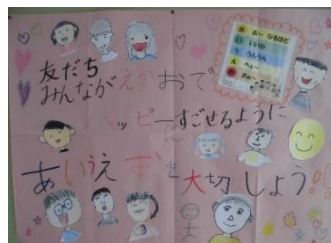 友だち
みんながえがおで
ハッピーすごせるように
あいうえおを大切しよう!!